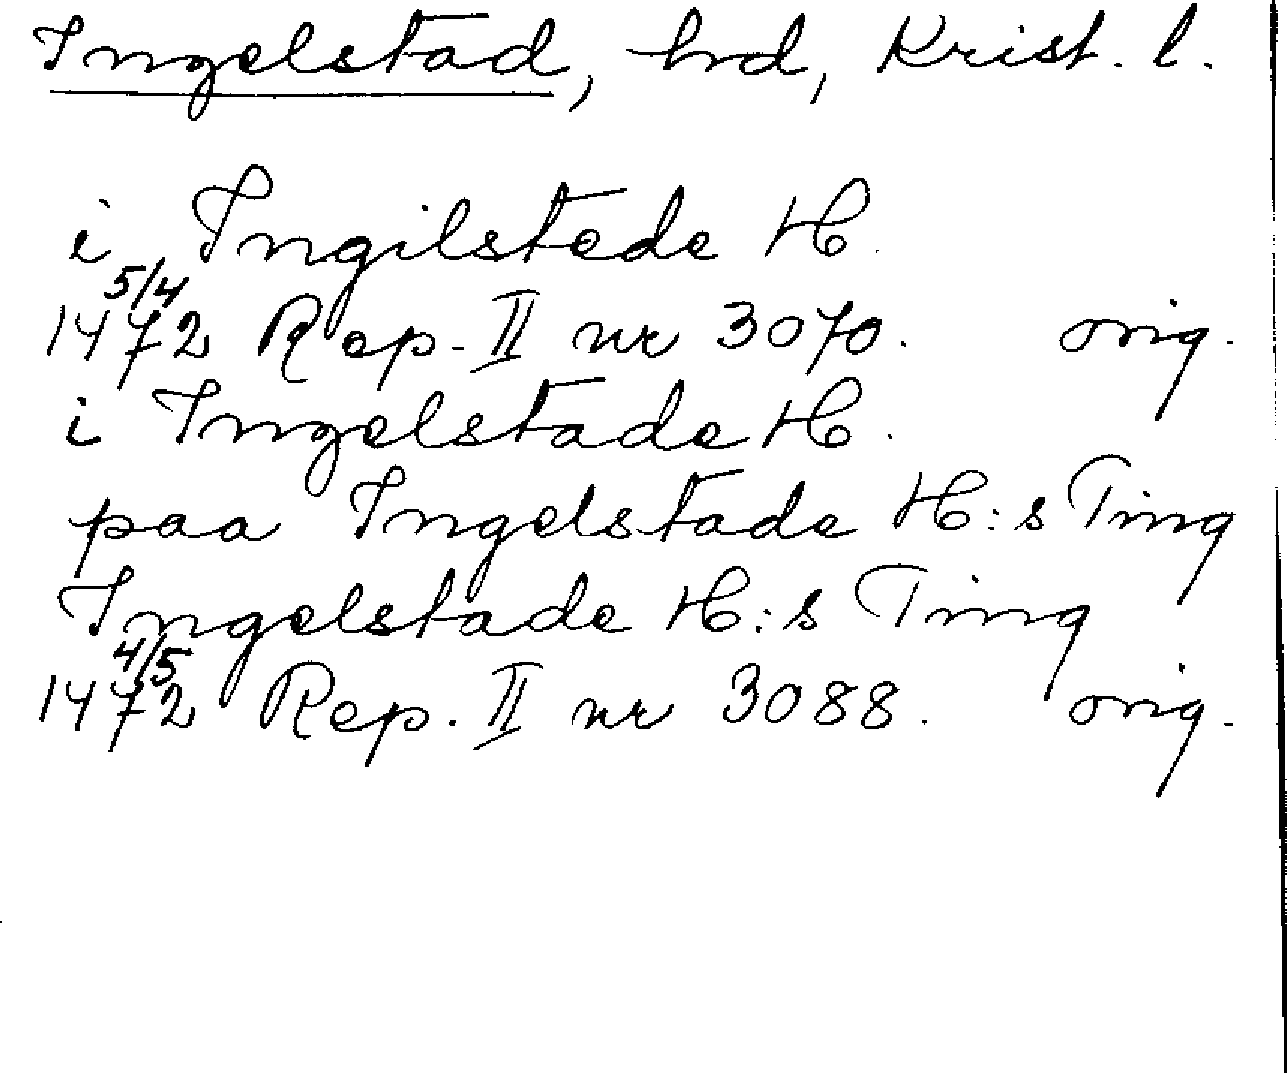 Ingelstad, hd, Krist. l.
i Ingilstede H.
5/4
1472 Rep. II nr 3070. orig.
i Ingelstade H.
paa Ingelstade H:s Ting
Ingelstade H:s Ting
4/5
1472 Rep. II nr 3088. orig.